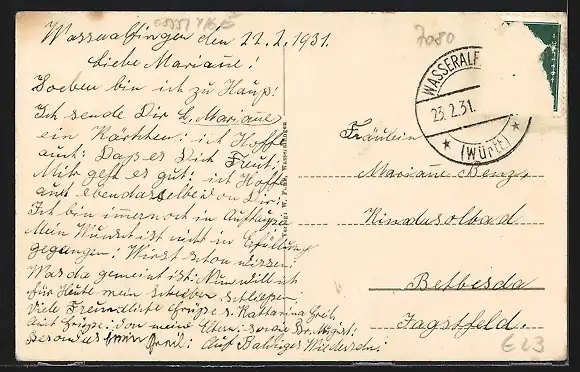 Wasseralfingen den 22.2.1931.
Liebe Mariane!
Soeben bin ich zu Haus!
Ich sende Dir L. Mariane
ein Kärtchen: ich Hoffe
auch: Dass es Dich Freut:
Mir geht es gut: ich Hoffe
auch ebendasselbe von Dir:
Ich bin immer noch in
Mein Wunsch ist nicht in Erfüllung
gegangen: Wirst schon wissen:
Was da gemeint ist: Nun will ich
für Heute mein Schreiben schließen:
Viele Freundliche Grüße a. Katharina
Auch Grüße: von meine Eltern: sowie
besonders April: Auf Baldiges Wiedersehn:
Verlag: W. Wasseralfingen
7080
WASSERALF
23.2.31.
(WÜRTT)
Fräulein
Mariane Benz,
Kindersolbad
Bethesda
Jagstfeld.
E23